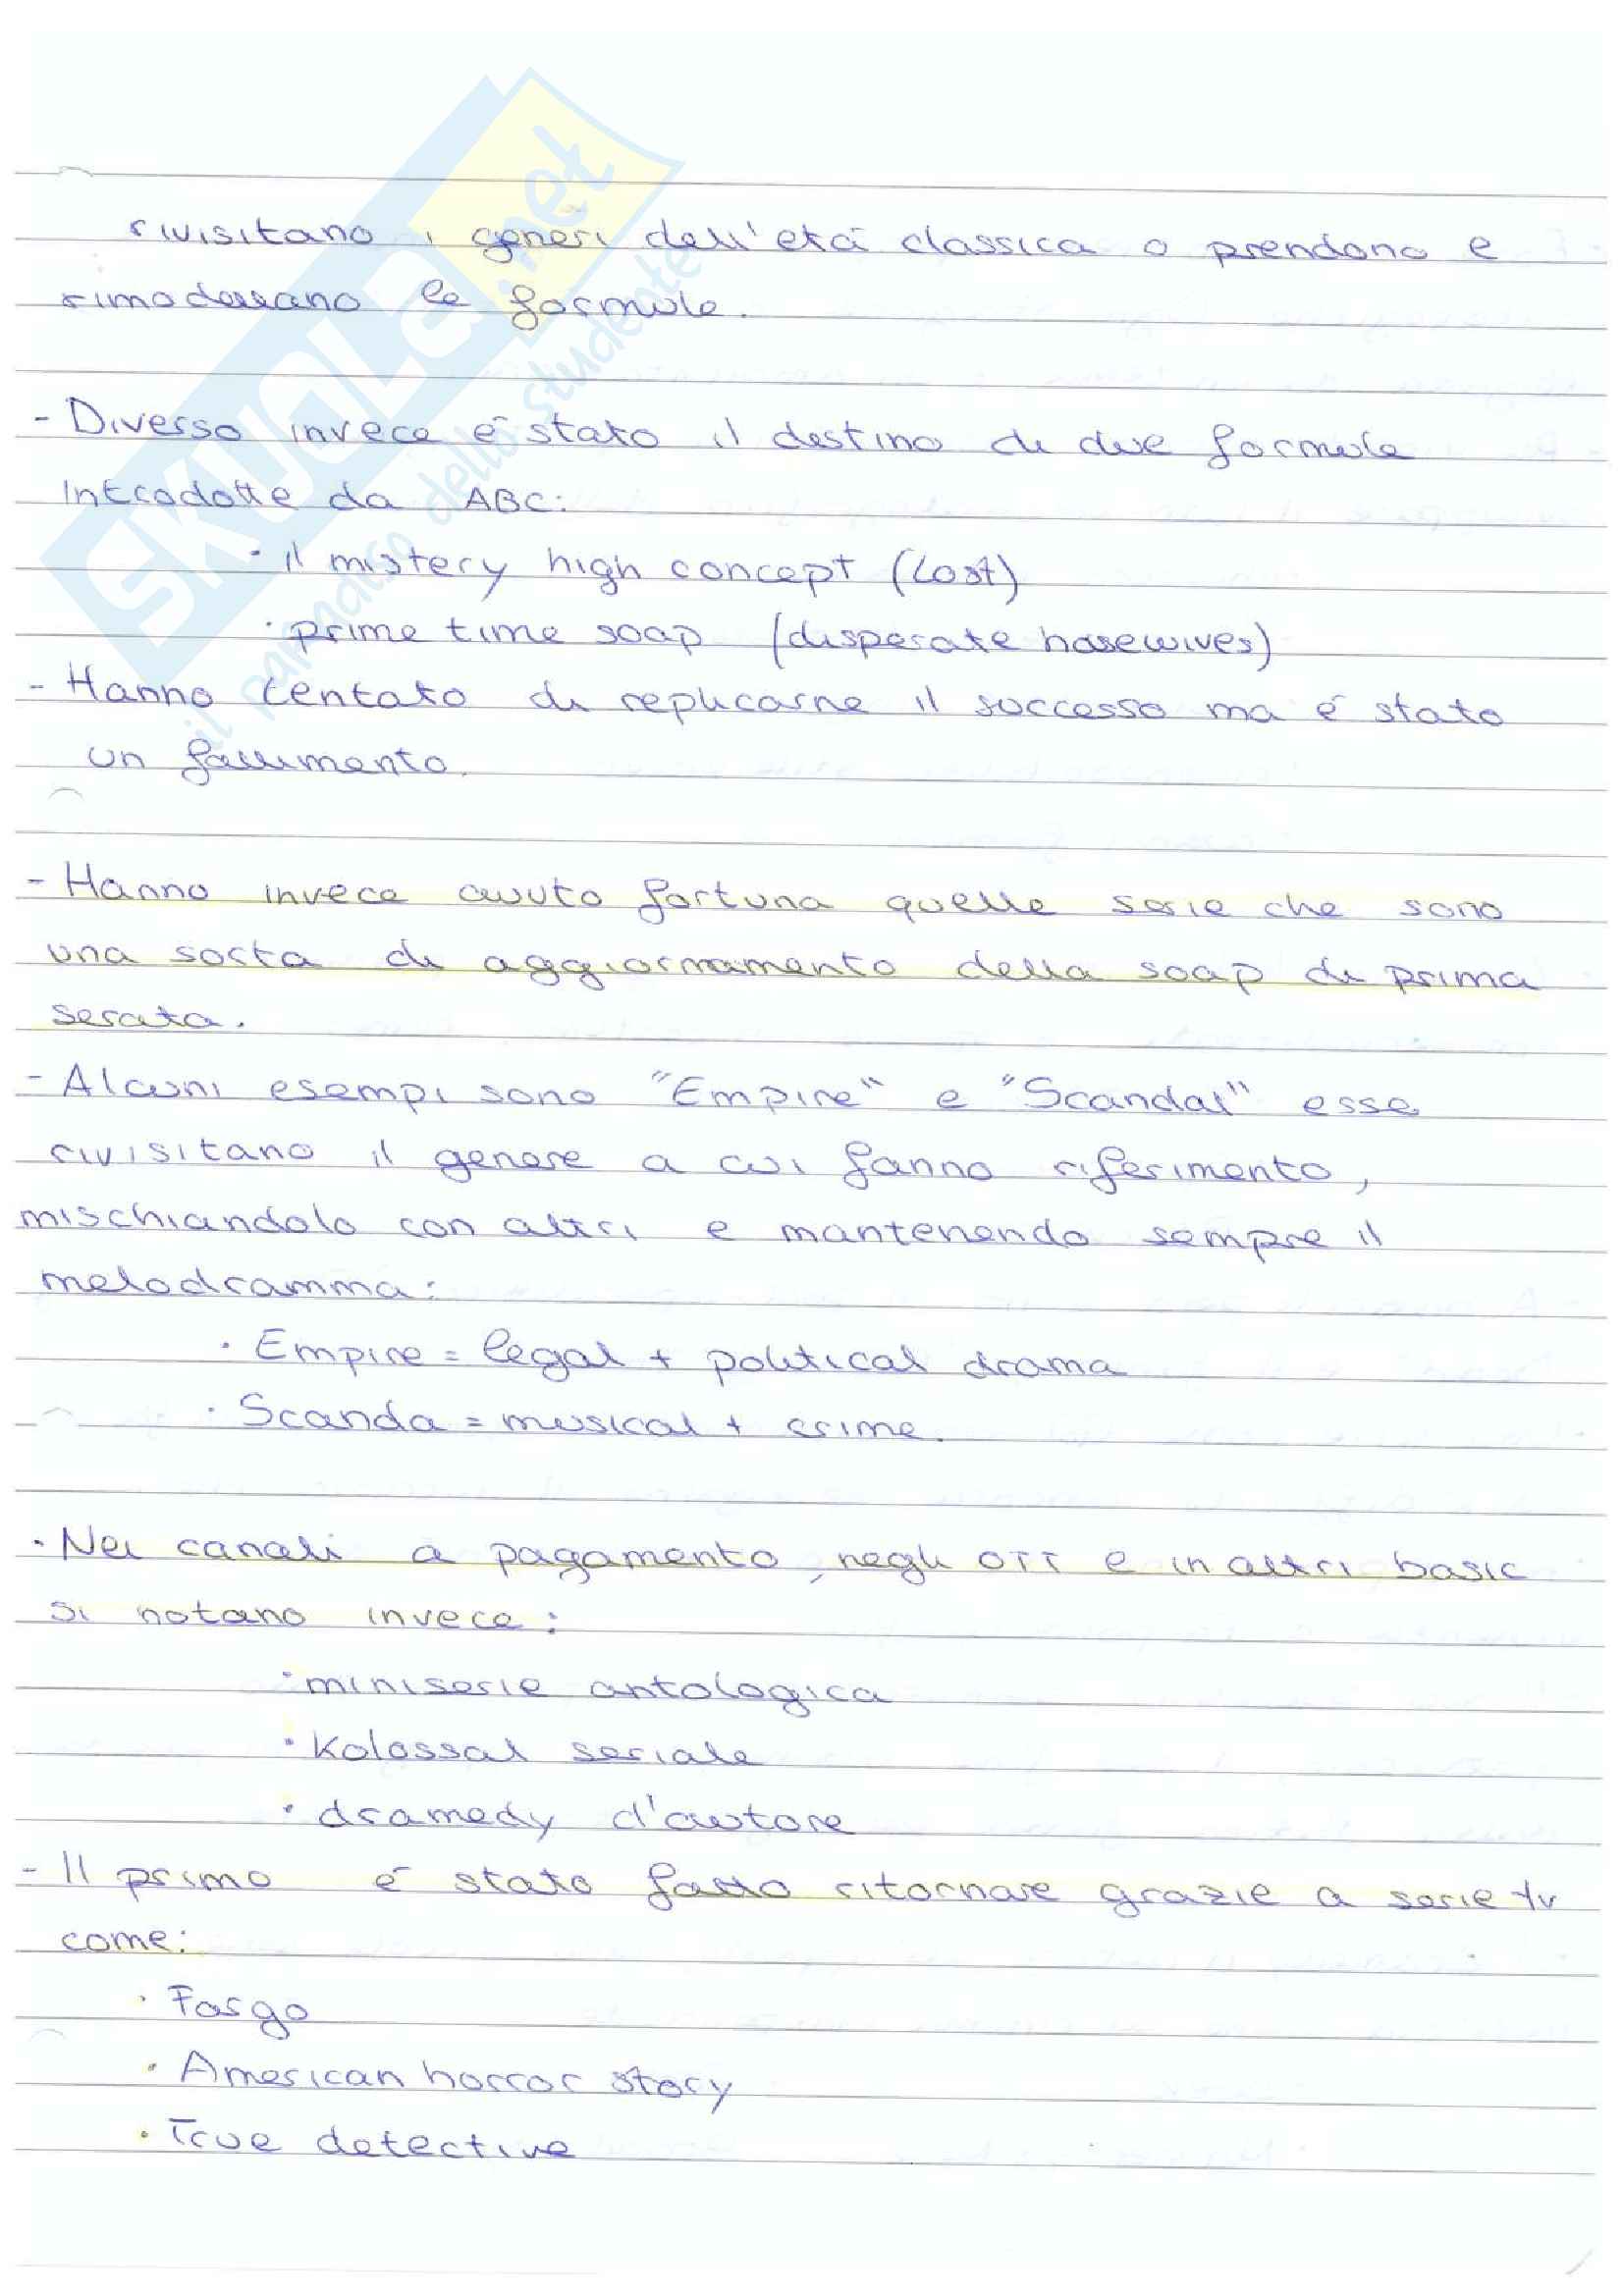 rivisitano i generi dell'età classica o prendono e
rimodellano le formule.
- Diverso invece è stato il destino di due formule
introdotte da ABC:
· il mistery high concept (Lost)
· prime time soap (disperate hosewives)
- Hanno tentato di replicarne il successo ma è stato
un fallimento.
- Hanno invece avuto fortuna quelle serie che sono
una sorta di aggiornamento della soap di prima
serata.
- Alcuni esempi sono "Empire" e "Scandal" esse
rivisitano il genere a cui fanno riferimento,
mischiandolo con altri e mantenendo sempre il
melodramma:
· Empire = legal + political drama
· Scanda = musical + crime.
· Nei canali a pagamento, negli OTT e in altri basic
si notano invece:
· miniserie antologica
· Kolossal seriale
· dramedy d'autore
- Il primo è stato fatto ritornare grazie a serie tv
come:
· Fargo
· American horror story
· True detective
SKUOLA.net
il paradiso dello studente